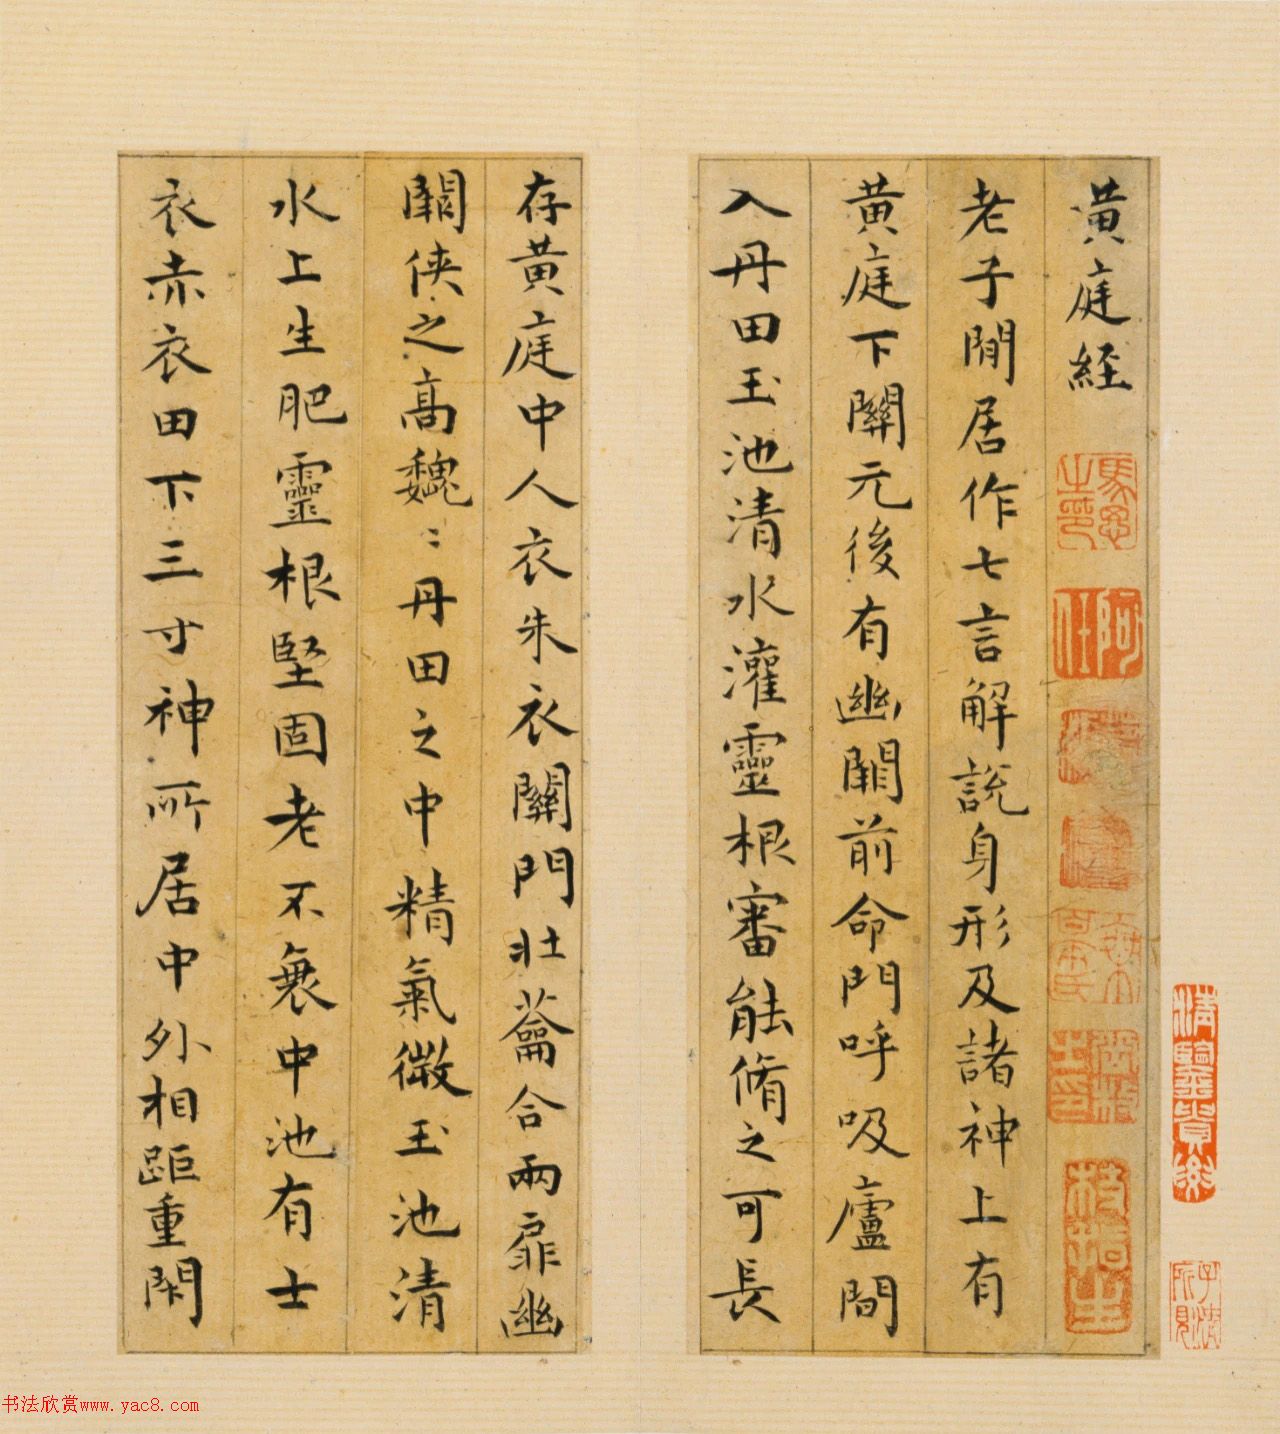 黃庭経
老子閒居作七言解說身形及諸神上有
黃庭下關元後有幽闕前命門呼吸廬間
入丹田玉池清水灌靈根審能脩之可長
存黃庭中人衣朱衣關門壯蘥合兩扉幽
闕俠之高魏〻丹田之中精氣微玉池清
水上生肥靈根堅固老不衰中池有士
衣赤衣田下三寸神所居中外相距重閇
清賞
书法欣赏www.yac8.com